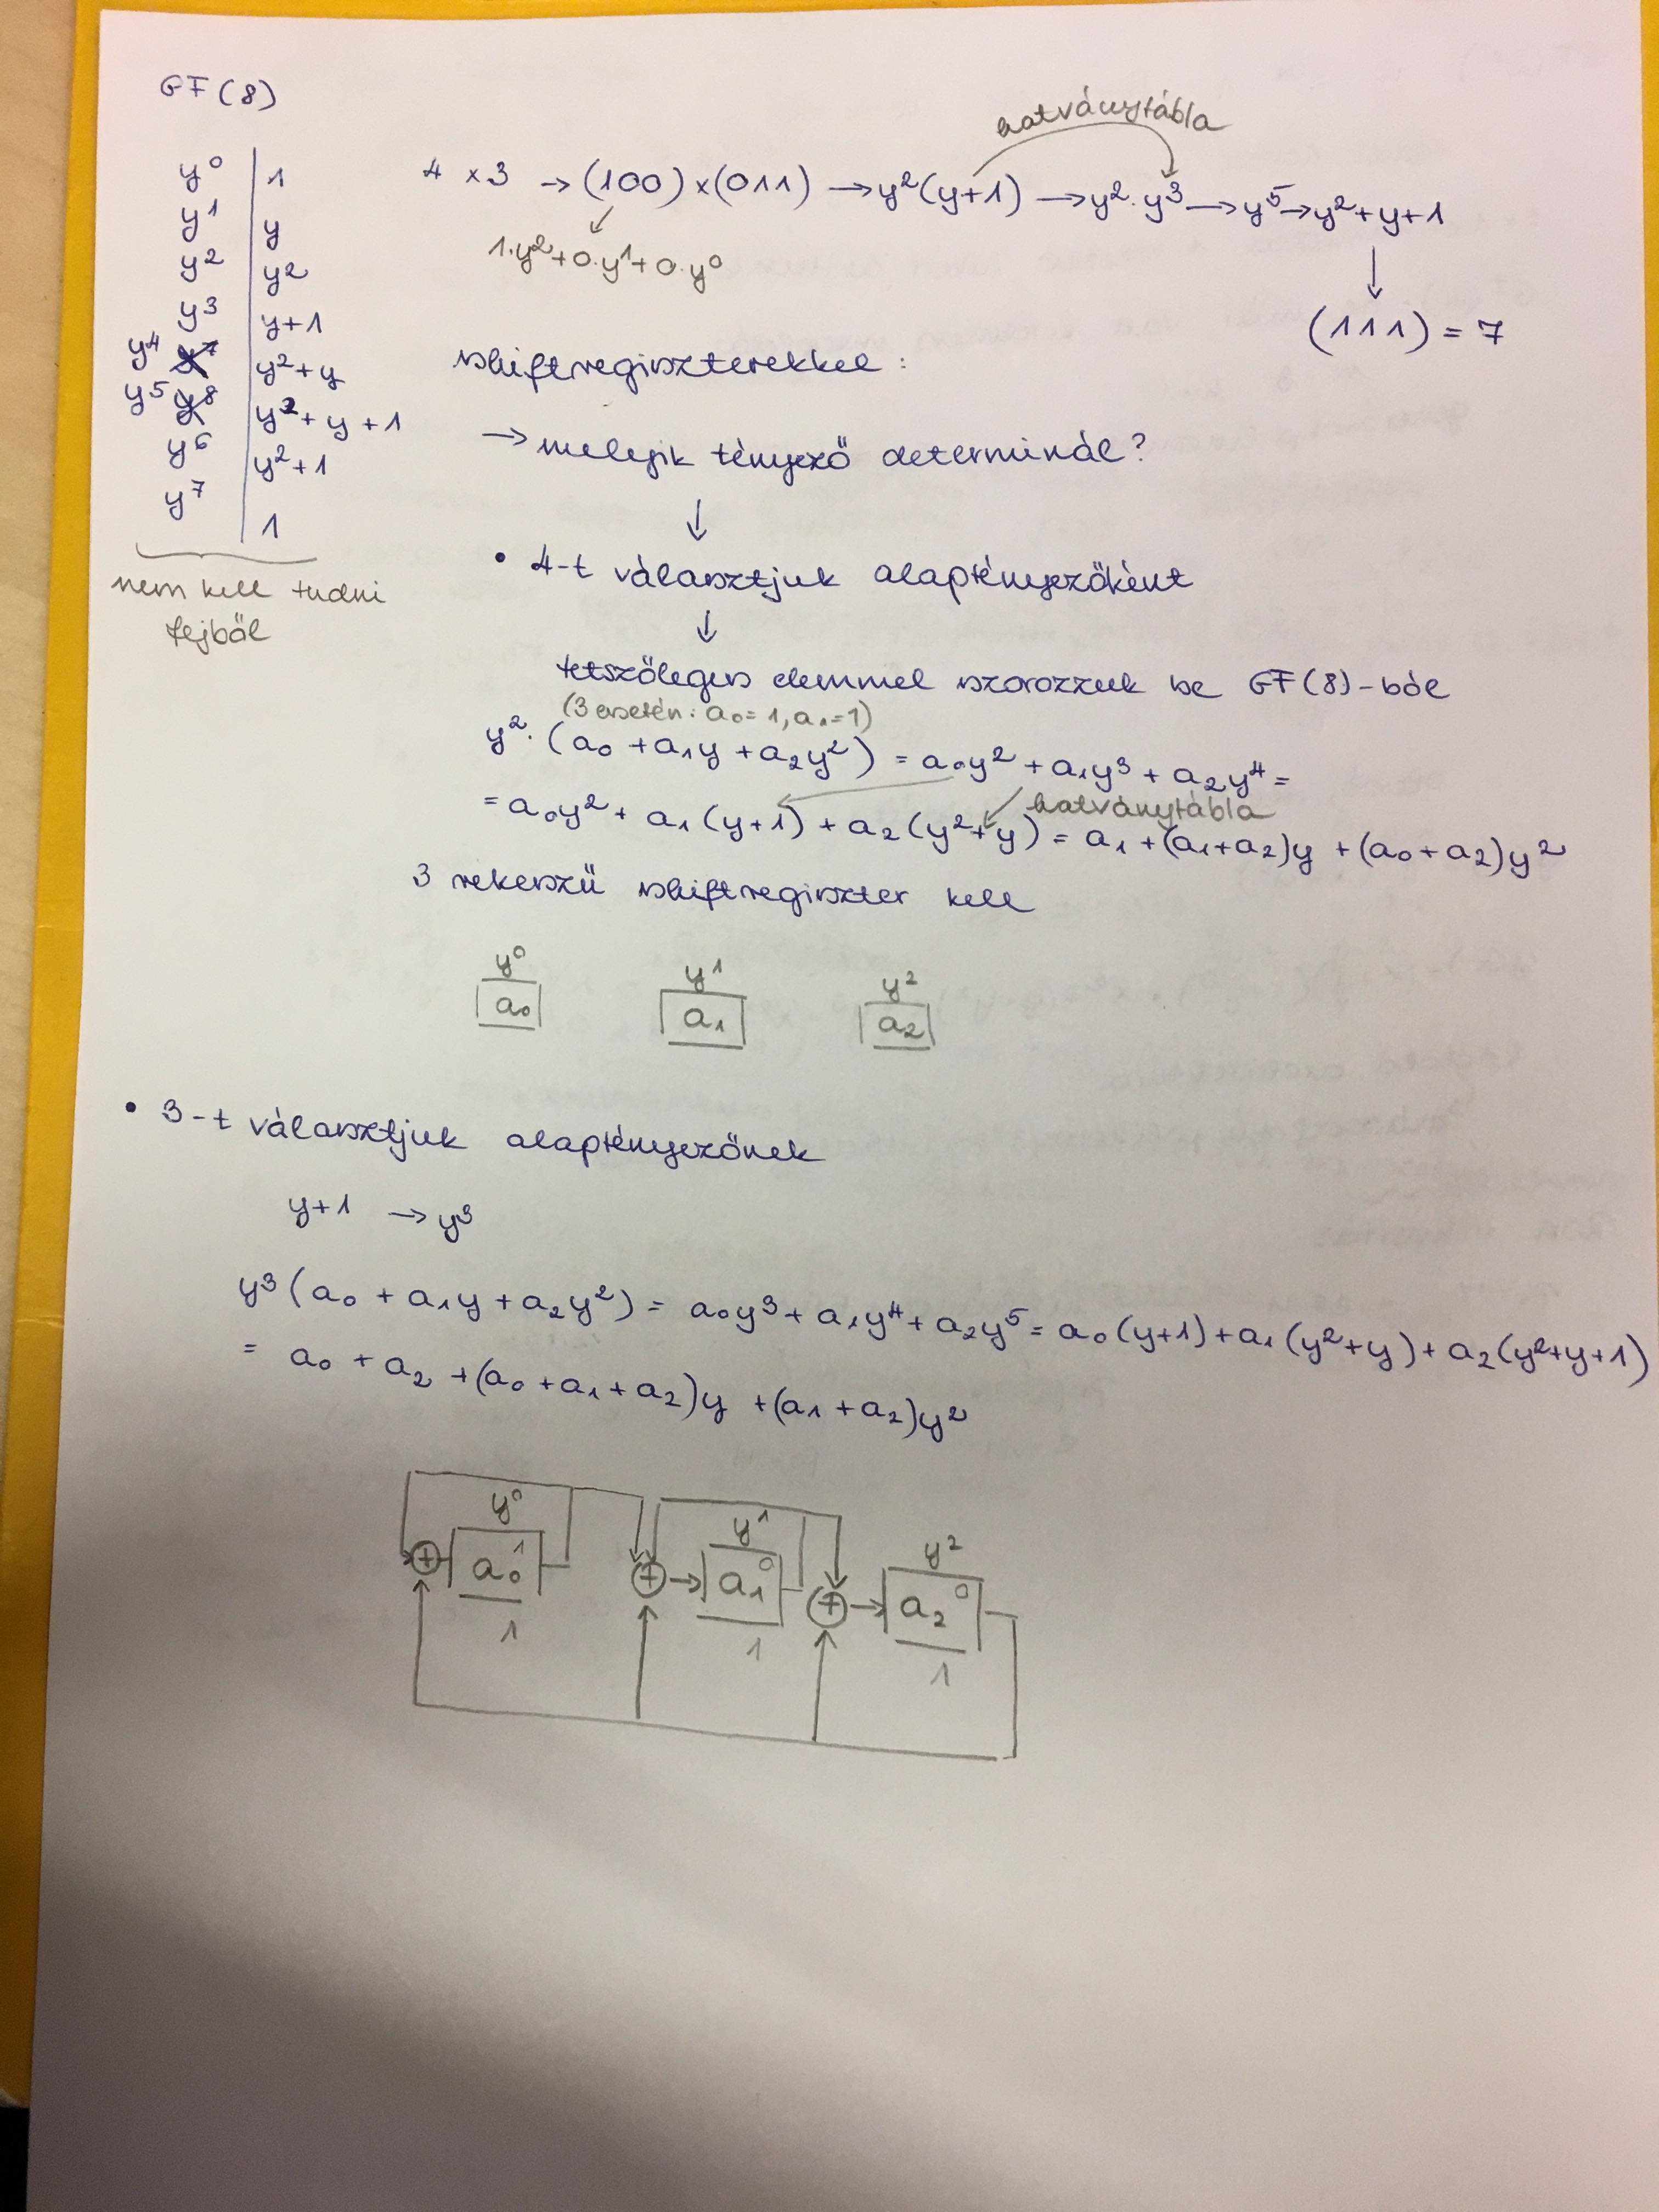 GF(8)
y⁰ | 1
y¹ | y
y² | y²
y³ | y+1
y⁴ | y²+y
y⁵ | y²+y+1
y⁶ | y²+1
y⁷ | 1
nem kell tudni
fejből
hatványtábla
4 × 3 → (100)×(011) → y²(y+1) → y²·y³ → y⁵ → y²+y+1
1·y²+0·y¹+0·y⁰
(111) = 7
shiftregiszterekkel:
→ melyik tényező determinál?
↓
• 4-t választjuk alaptényezőként
↓
tetszőleges elemmel szorozzuk be GF(8)-ból
(3 esetén: a₀=1, a₁=1)
y²·(a₀ + a₁y + a₂y²) = a₀y² + a₁y³ + a₂y⁴ =
hatványtábla
= a₀y² + a₁(y+1) + a₂(y²+y) = a₁ + (a₁+a₂)y + (a₀+a₂)y²
3 rekeszű shiftregiszter kell
y⁰ y¹ y²
a₀ a₁ a₂
• 3-t választjuk alaptényezőnek
y+1 → y³
y³(a₀ + a₁y + a₂y²) = a₀y³ + a₁y⁴ + a₂y⁵ = a₀(y+1) + a₁(y²+y) + a₂(y²+y+1)
= a₀ + a₂ + (a₀ + a₁ + a₂)y + (a₁ + a₂)y²
y⁰ y¹ y²
+ a₀ 1 + a₁ 0 + a₂ 0
1 1 1